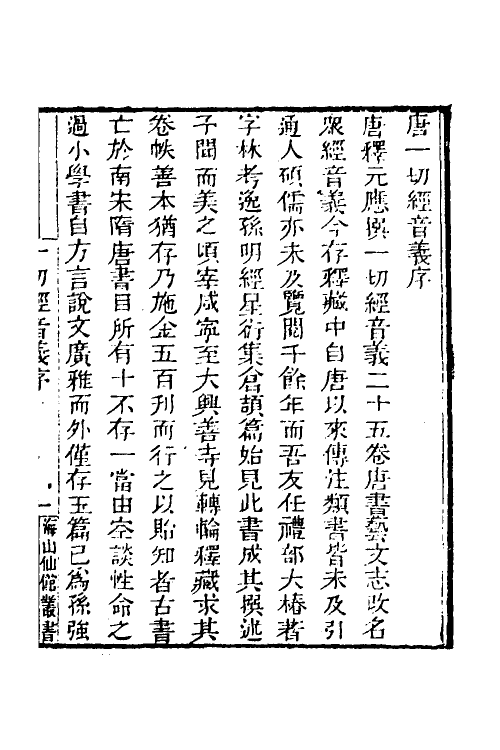 唐一切經音義序
唐釋元應撰一切經音義二十五卷唐書藝文志改名
眾經音義今存釋藏中自唐以來傳注類書皆未及引
通人碩儒亦未及覽閱千餘年而吾友任禮部大椿著
字林考逸孫明經星衍集倉頡篇始見此書成其撰述
子聞而美之頃宰咸寧至大興善寺見轉輪釋藏求其
卷帙善本猶存乃施金五百刊而行之以貽知者古書
亡於南宋隋唐書目所有十不存一當由空談性命之
過小學書自方言說文廣雅而外僅存玉篇已為孫強
一切經音義序 一 海山仙館叢書